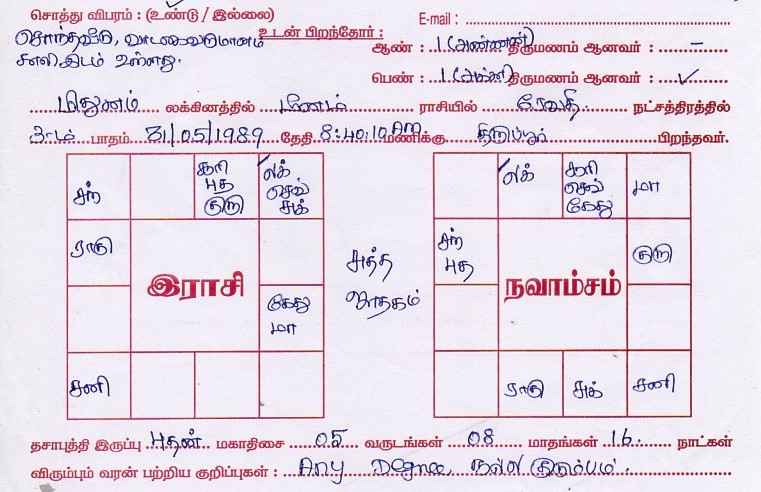 சொத்து விபரம் : (உண்டு / இல்லை)
E-mail :
சொந்தவீடு, வாடகைவருமானம்
உடன் பிறந்தோர் :
ஆண் : 1 (அண்ணன்) திருமணம் ஆனவர் : –
காலி இடம் உள்ளது.
பெண் : 1 (அக்கா) திருமணம் ஆனவர் : ✓
மிதுனம் லக்கினத்தில் மீனம் ராசியில் ரேவதி நட்சத்திரத்தில்
3ம் பாதம் 31/05/1989 தேதி 8:40:10 AM மணிக்கு திருப்பூர் பிறந்தவர்.
சந் சூரி புத குரு லக் செவ் சுக்
ராகு
இராசி
கேது மா
சனி
சுத்த ஜாதகம்
லக் சூரி செவ் கேது மா
சந் புத குரு
நவாம்சம்
ராகு சுக் சனி
தசாபுத்தி இருப்பு புதன் மகாதிசை 05 வருடங்கள் 08 மாதங்கள் 16 நாட்கள்
விரும்பும் வரன் பற்றிய குறிப்புகள் : Any Degree, நல்ல குடும்பம்.